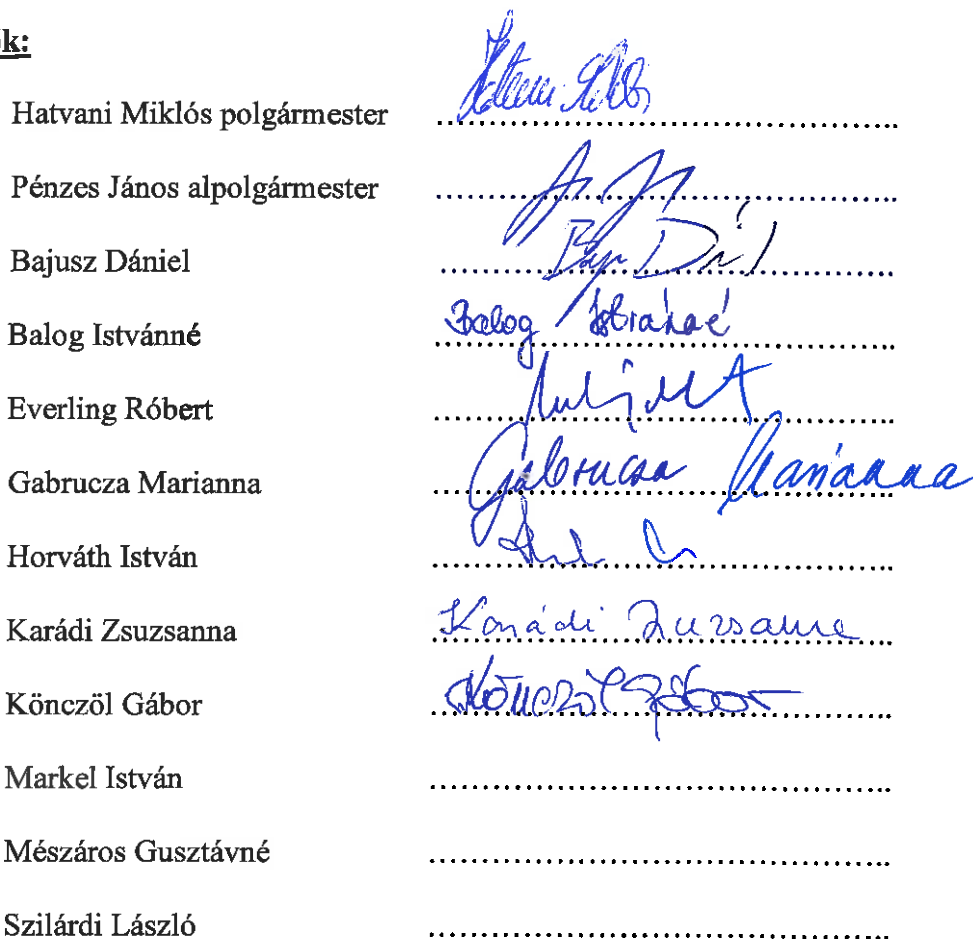 k:
Hatvani Miklós polgármester
Pénzes János alpolgármester
Bajusz Dániel
Balog Istvánné Balog Istvánné
Everling Róbert
Gabrucza Marianna Gabrucza Marianna
Horváth István
Karádi Zsuzsanna Karádi Zsuzsanna
Könczöl Gábor Könczöl Gábor
Markel István
Mészáros Gusztávné
Szilárdi László